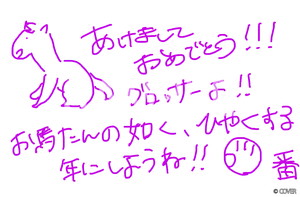 あけまして
おめでとう!!!
グロッサーよ!!
お馬たんの如く、ひやくする
年にしようね!! 番
© COVER